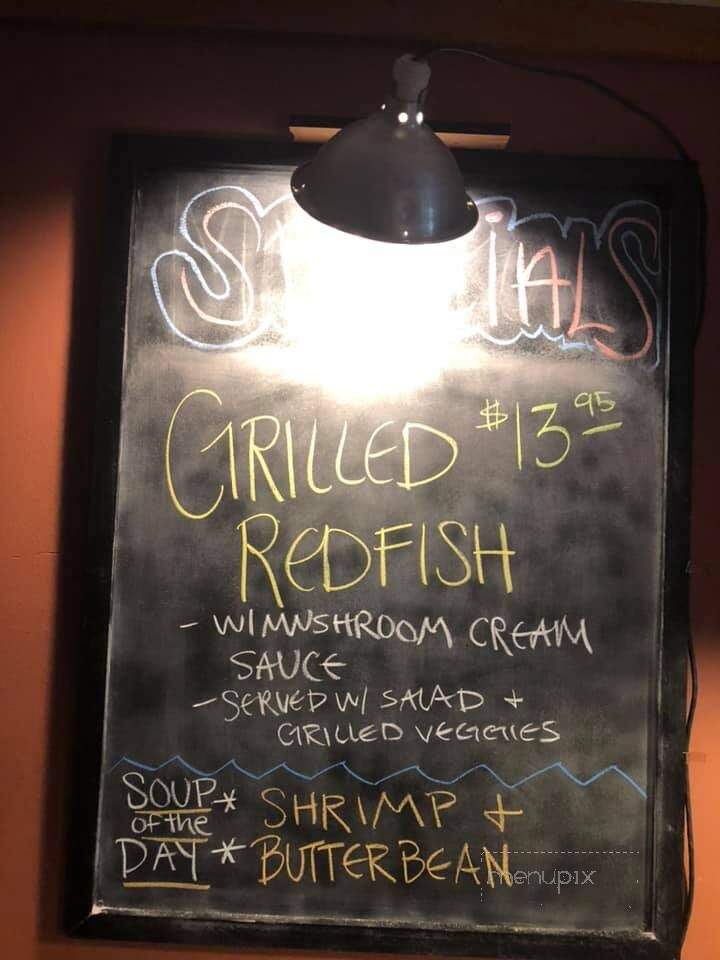 GRILLED $13.95
REDFISH
- W/MUSHROOM CREAM
SAUCE
- SERVED W/ SALAD +
GRILLED VEGGIES
SOUP * SHRIMP +
of the
DAY * BUTTERBEAN
menupix